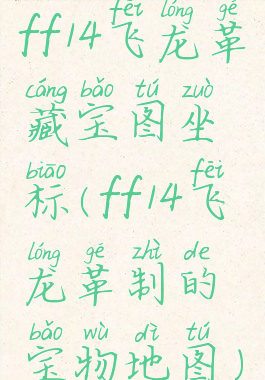 fēi lóng gé
ff14飞龙革
cáng bǎo tú zuò
藏宝图坐
biāo fēi
标(ff14飞
lóng gé zhì de
龙革制的
bǎo wù dì tú
宝物地图)